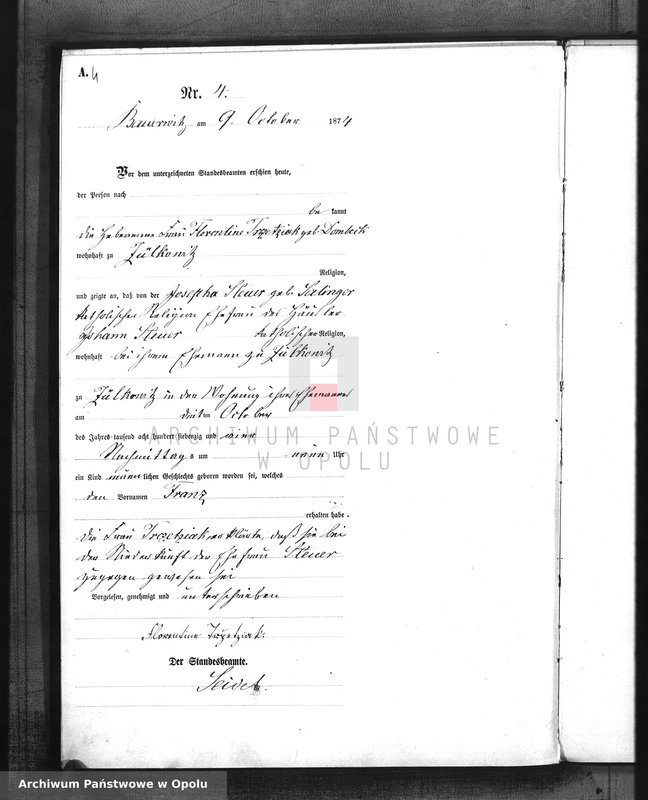 A. 4
Nr. 4.
Bauerwitz am 9. October 1874
Vor dem unterzeichneten Standesbeamten erschien heute,
der Person nach
be kannt
die Hebamme Frau Florentine Trzetziak geb. Dombeck
wohnhaft zu Zülkowitz
Religion,
und zeigte an, daß von der Josepha Steuer geb. Satinger
katholischer Religion Ehefrau des Häusler
Johann Steuer katholischer Religion,
wohnhaft bei ihrem Ehemann zu Zülkowitz
zu Zülkowitz in der Wohnung ihres Ehemannes
am dritten October
des Jahres tausend acht hundert siebenzig und vier
Nachmittag s um neun Uhr
ein Kind männlichen Geschlechts geboren worden sei, welches
den Vornamen Franz
erhalten habe.
Die Frau Trzetziak erklärte, daß sie bei
der Niederkunft der Ehefrau Steuer
zugegen gewesen sei
Vorgelesen, genehmigt und unterschrieben
Florentine Trzetziak.
Der Standesbeamte.
Seidel.
ARCHIWUM PAŃSTWOWE
W OPOLU
Archiwum Państwowe w Opolu